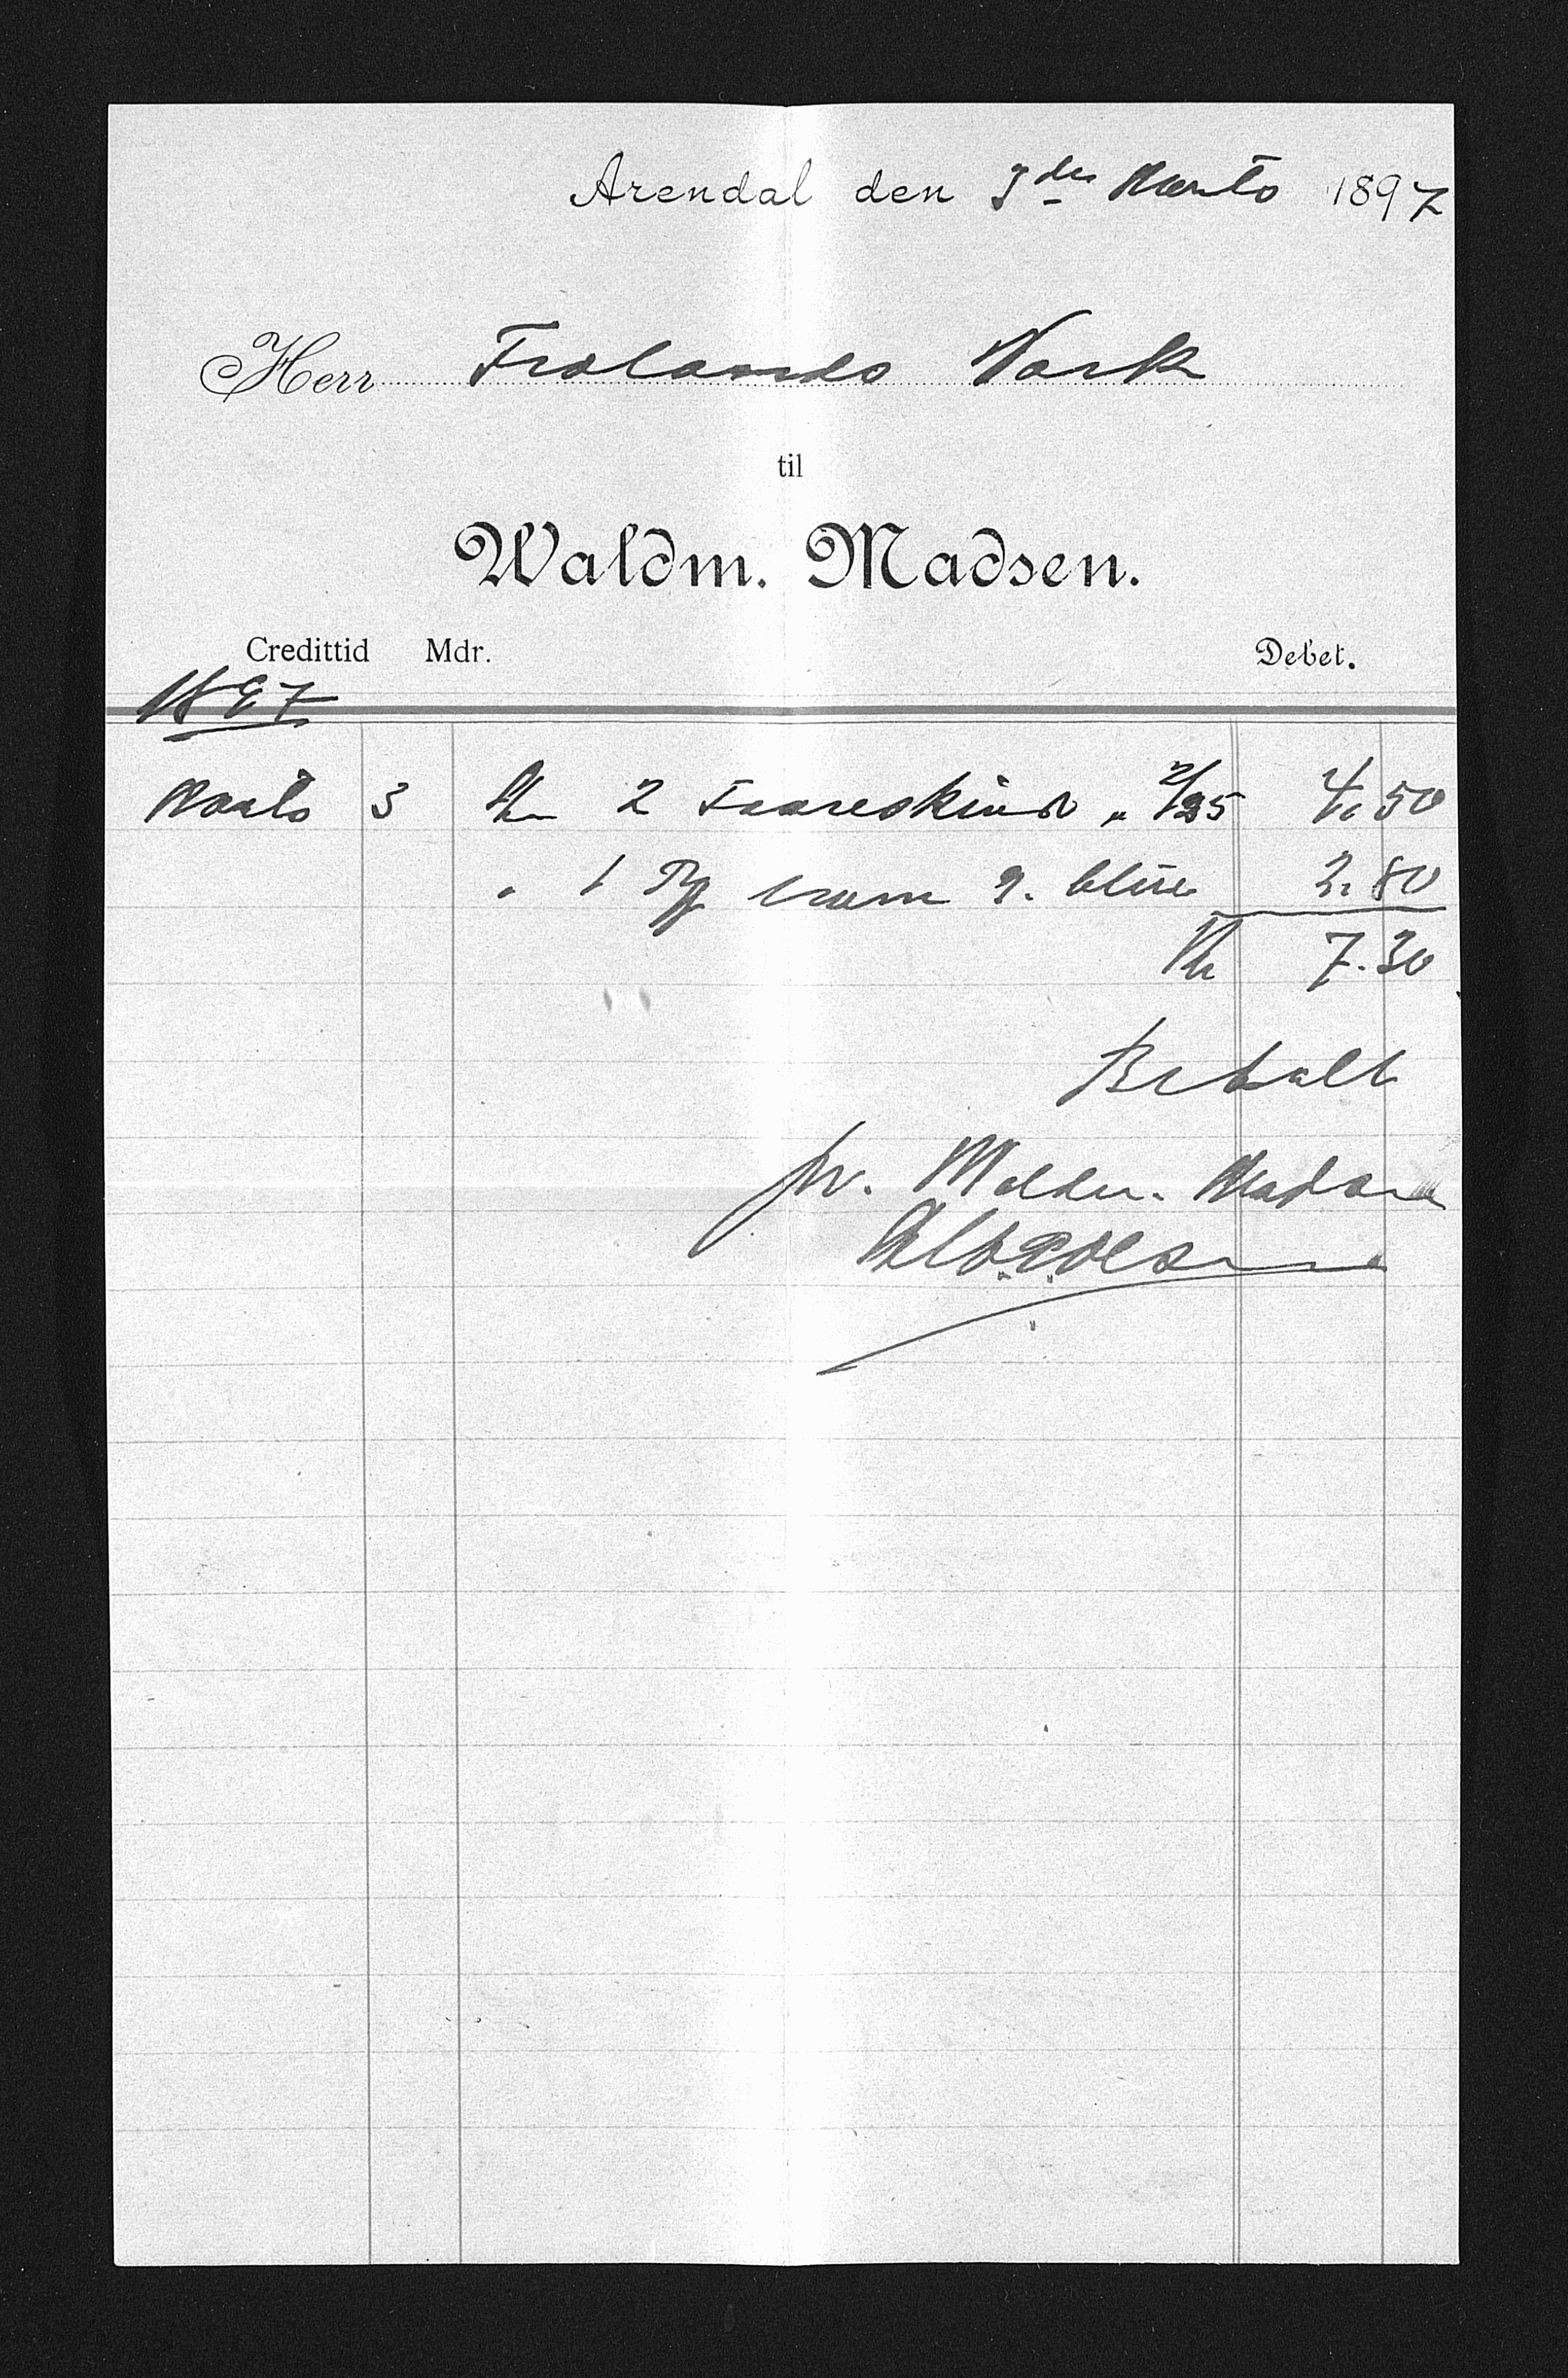 Arendal den 3die Marts 1897
Herr Frolands Værk
til
Waldm. Madsen.
Credittid Mdr. Debet.
1897
Marts 3 2 Faareskind " 2/25 4,50
" 1 2,80
Kr 7.30
Betalt
pr. Waldm. Madsen